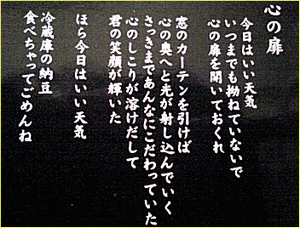 心の扉
今日はいい天気
いつまでも拗ねていないで
心の扉を開いておくれ
窓のカーテンを引けば
心の奥へと光が射し込んでいく
さっきまであんなにこだわっていた
心のしこりが溶けだして
君の笑顔が輝いた
ほら今日はいい天気
冷蔵庫の納豆
食べちゃってごめんね